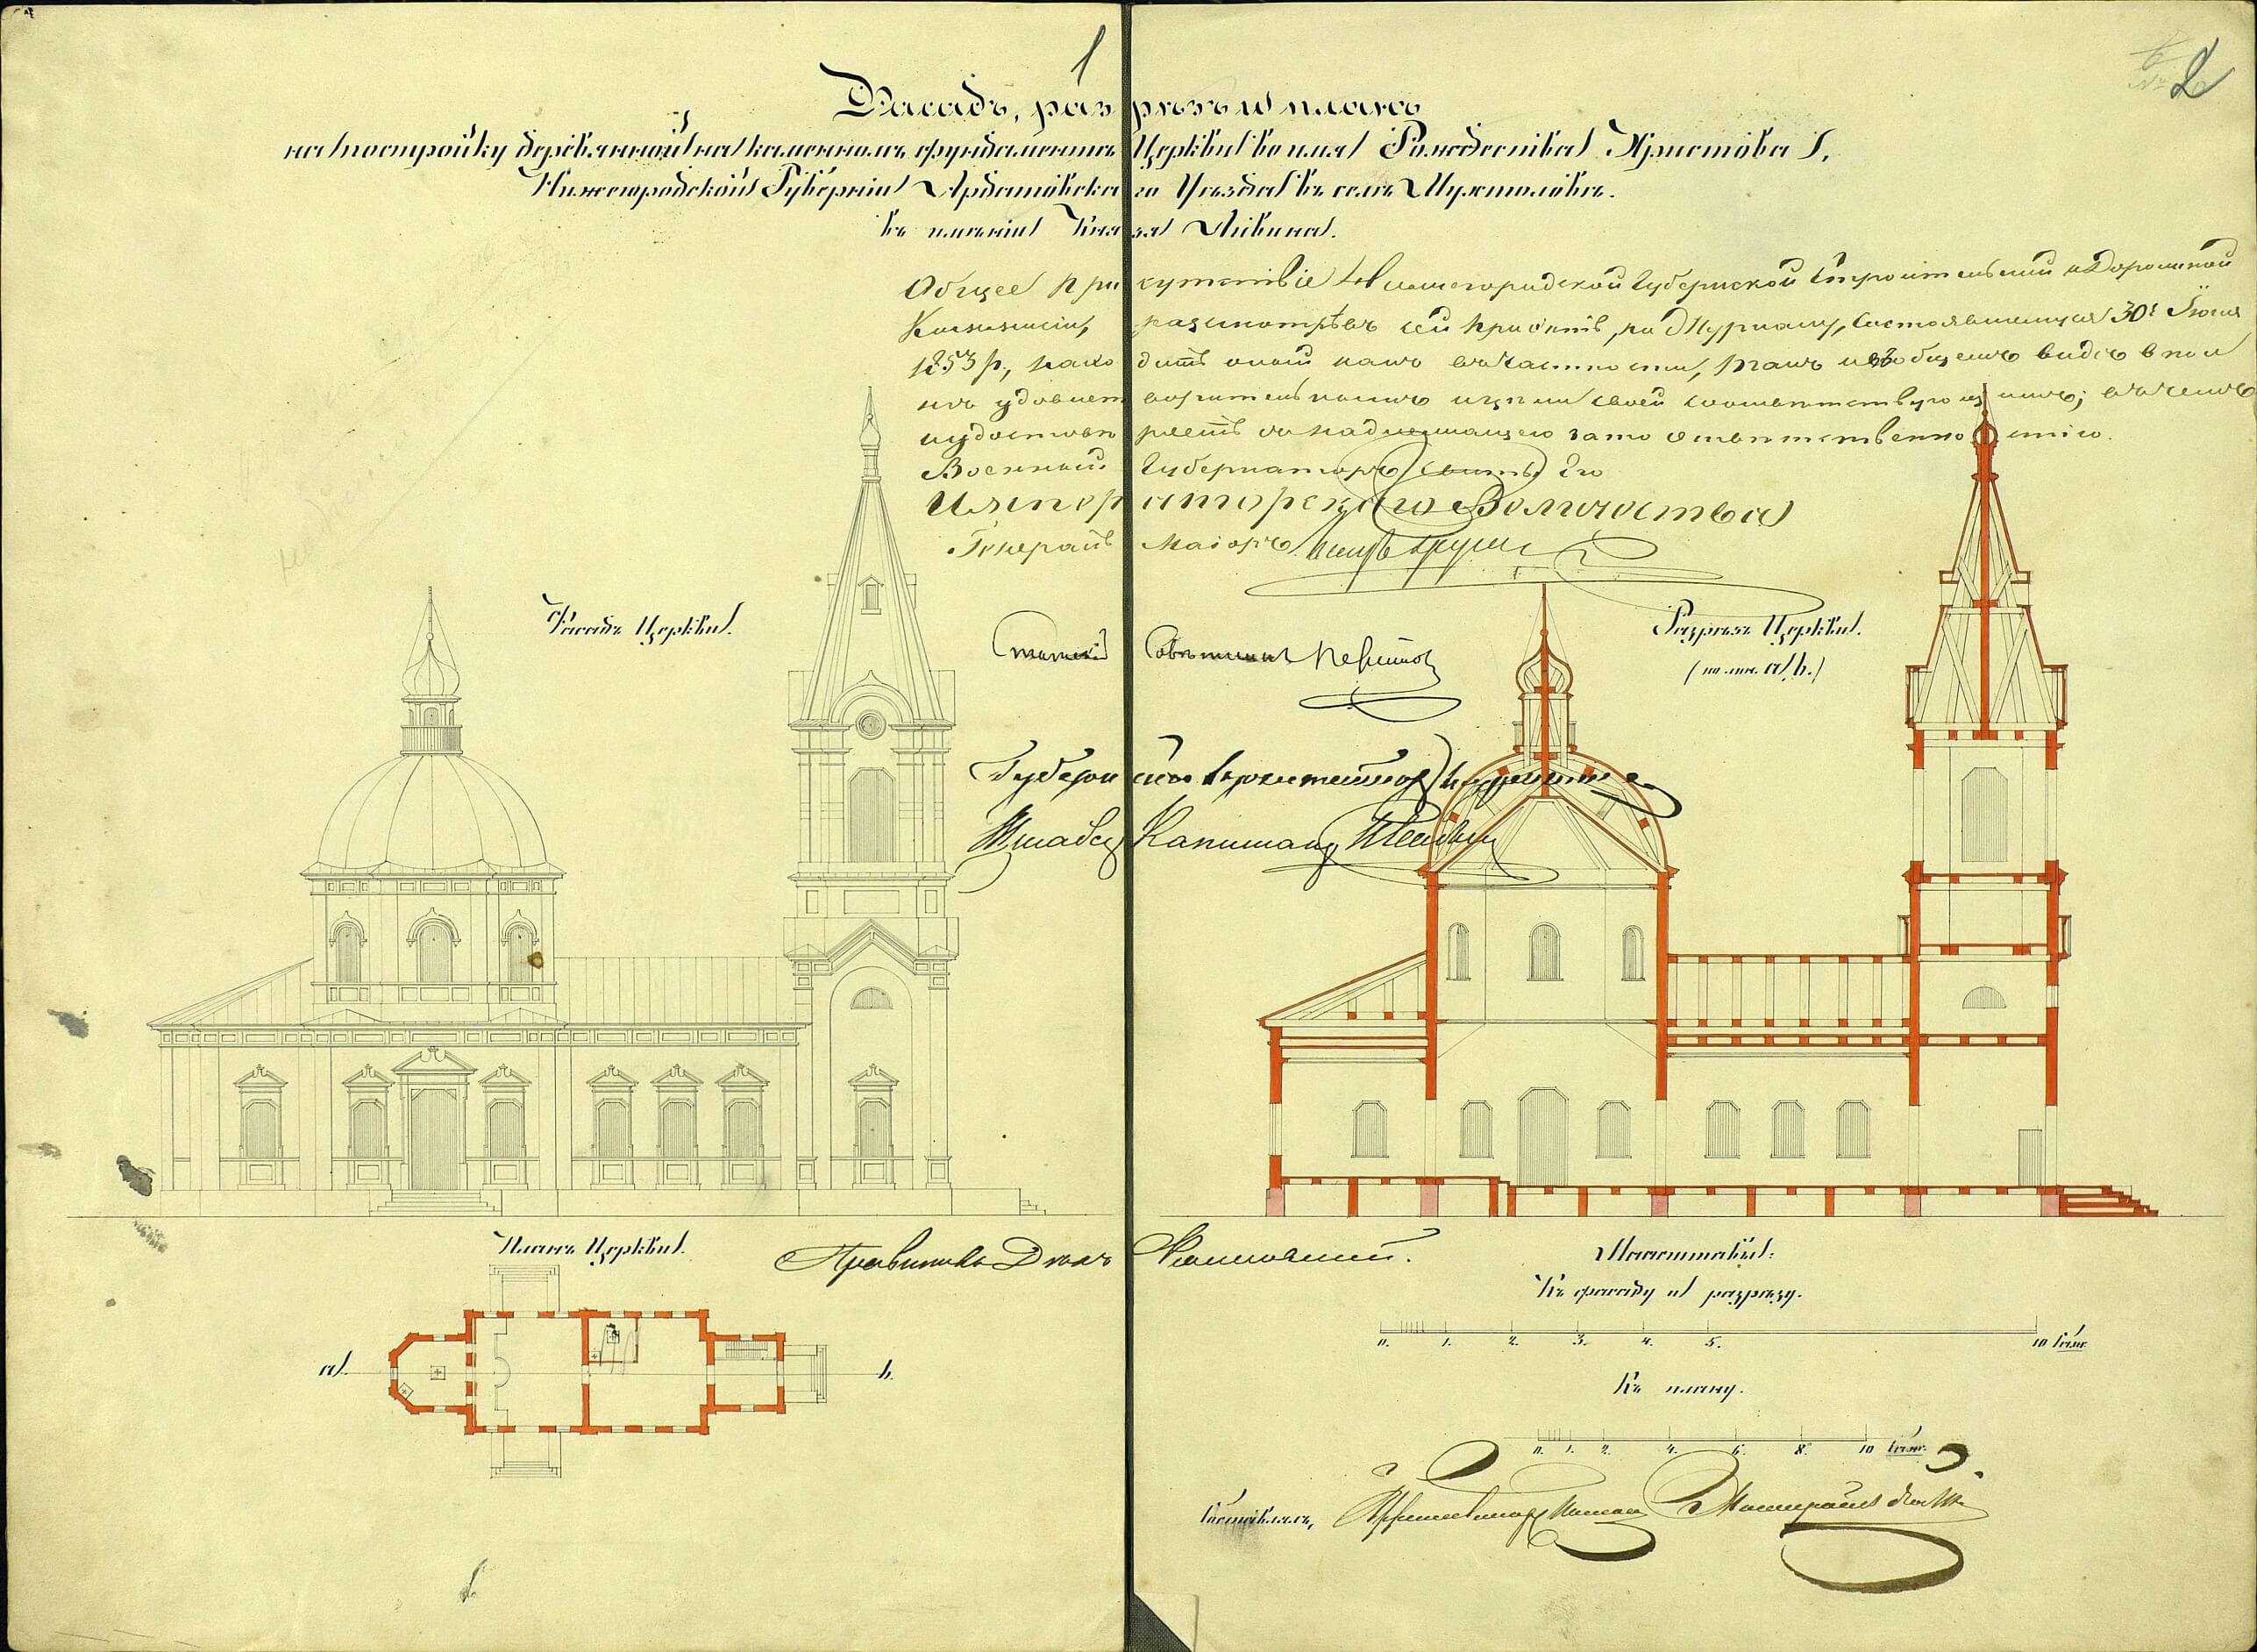 1
2
Фасадъ, разрѣзъ и планъ
на постройку деревянной на каменномъ фундаментѣ Церкви во имя Рождества Христова,
Нижегородской Губерніи Ардатовскаго Уѣзда въ селѣ Мухтоловѣ.
въ имѣніи Князя Ливина.
Общее присутствіе Нижегородской Губернской Строительной и Дорожной
Коммисіи, разсмотрѣвъ сей проэктъ, по Журналу, состоявшемуся 30 Іюня
1853 г., находитъ оный какъ въ частности, такъ и въ общемъ видѣ впол
нѣ удовлетворительнымъ и цѣли своей соотвѣтствующимъ; въ чемъ
и удостовѣряетъ съ надлежащею за то отвѣтственностію.
Военный Губернаторъ Свиты Его
Императорскаго Величества
Генералъ Маіоръ
Фасадъ Церкви.
Разрѣзъ Церкви.
(по лин. a b.)
Статскій Совѣтникъ
Губернскій Архитекторъ
Штабсъ Капитанъ
Планъ Церкви.
Правитель Дѣлъ
Масштабы:
Къ фасаду и разрѣзу.
0. 1. 2. 3. 4. 5. 10 Саж.
a b.
Къ плану.
0. 1. 2. 4. 6. 8. 10 Саж.
Составлялъ,